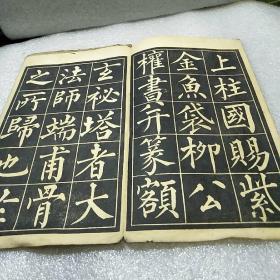 上柱國賜紫
金魚袋柳公
權書并篆額
玄秘塔者大
法師端甫骨
之所歸也於